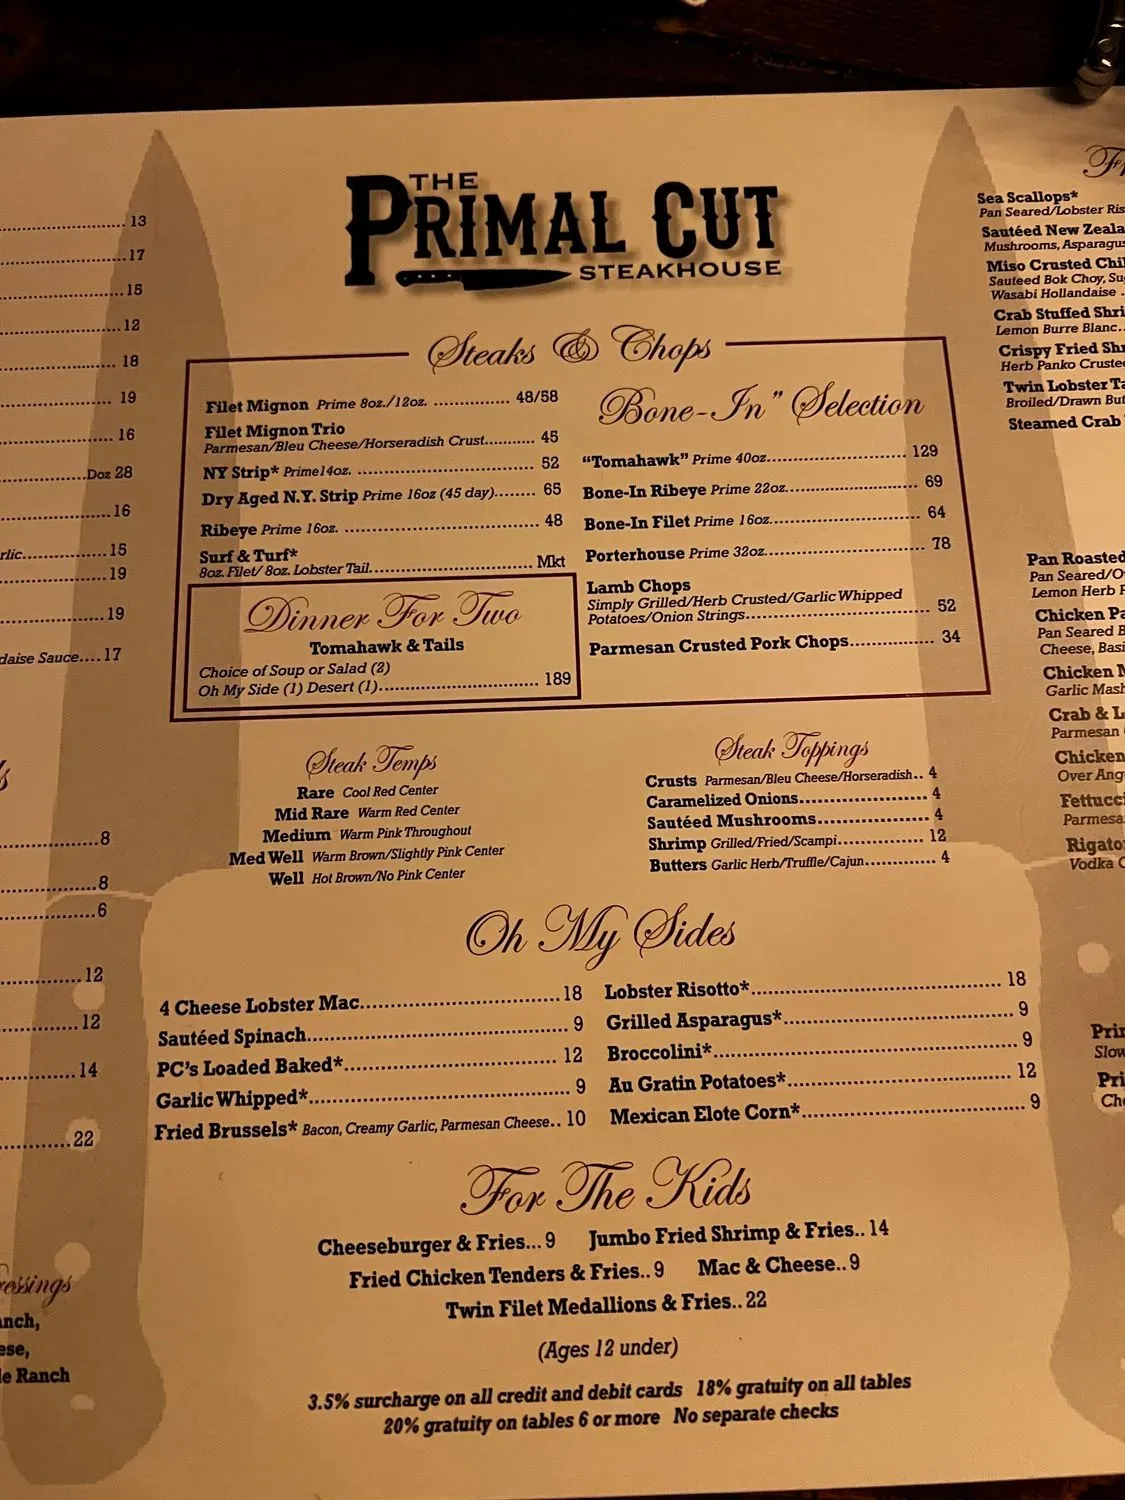 13
17
15
12
18
19
16
Doz 28
16
rlic.....15
19
19
daise Sauce....17
8
8
6
12
12
14
22
essings
nch,
ese,
le Ranch
THE
PRIMAL CUT
STEAKHOUSE
Steaks & Chops
Filet Mignon Prime 8oz./12oz. ........... 48/58
Filet Mignon Trio
Parmesan/Bleu Cheese/Horseradish Crust........... 45
NY Strip* Prime14oz. ........... 52
Dry Aged N.Y. Strip Prime 16oz (45 day)........ 65
Ribeye Prime 16oz. ........... 48
Surf & Turf*
8oz. Filet/ 8oz. Lobster Tail........... Mkt
Dinner For Two
Tomahawk & Tails
Choice of Soup or Salad (2)
Oh My Side (1) Desert (1)........... 189
Bone-In" Selection
"Tomahawk" Prime 40oz........... 129
Bone-In Ribeye Prime 22oz........... 69
Bone-In Filet Prime 16oz........... 64
Porterhouse Prime 32oz........... 78
Lamb Chops
Simply Grilled/Herb Crusted/Garlic Whipped
Potatoes/Onion Strings........... 52
Parmesan Crusted Pork Chops........... 34
Steak Temps
Rare Cool Red Center
Mid Rare Warm Red Center
Medium Warm Pink Throughout
Med Well Warm Brown/Slightly Pink Center
Well Hot Brown/No Pink Center
Steak Toppings
Crusts Parmesan/Bleu Cheese/Horseradish.. 4
Caramelized Onions........... 4
Sautéed Mushrooms........... 4
Shrimp Grilled/Fried/Scampi........... 12
Butters Garlic Herb/Truffle/Cajun........... 4
Oh My Sides
4 Cheese Lobster Mac........... 18
Sautéed Spinach........... 9
PC's Loaded Baked*........... 12
Garlic Whipped*........... 9
Fried Brussels* Bacon, Creamy Garlic, Parmesan Cheese.. 10
Lobster Risotto*........... 18
Grilled Asparagus*........... 9
Broccolini*........... 9
Au Gratin Potatoes*........... 12
Mexican Elote Corn*........... 9
For The Kids
Cheeseburger & Fries... 9 Jumbo Fried Shrimp & Fries.. 14
Fried Chicken Tenders & Fries.. 9 Mac & Cheese.. 9
Twin Filet Medallions & Fries.. 22
(Ages 12 under)
3.5% surcharge on all credit and debit cards 18% gratuity on all tables
20% gratuity on tables 6 or more No separate checks
Sea Scallops*
Pan Seared/Lobster Ris
Sautéed New Zeala
Mushrooms, Asparagus
Miso Crusted Chil
Sauteed Bok Choy, Su
Wasabi Hollandaise
Crab Stuffed Shri
Lemon Burre Blanc..
Crispy Fried Shr
Herb Panko Crusted
Twin Lobster Ta
Broiled/Drawn But
Steamed Crab
Pan Roasted
Pan Seared/O
Lemon Herb P
Chicken Pa
Pan Seared B
Cheese, Basi
Chicken M
Garlic Mash
Crab & L
Parmesan
Chicken
Over Ang
Fettucci
Parmesa
Rigato
Vodka C
Prin
Slow
Pri
Che